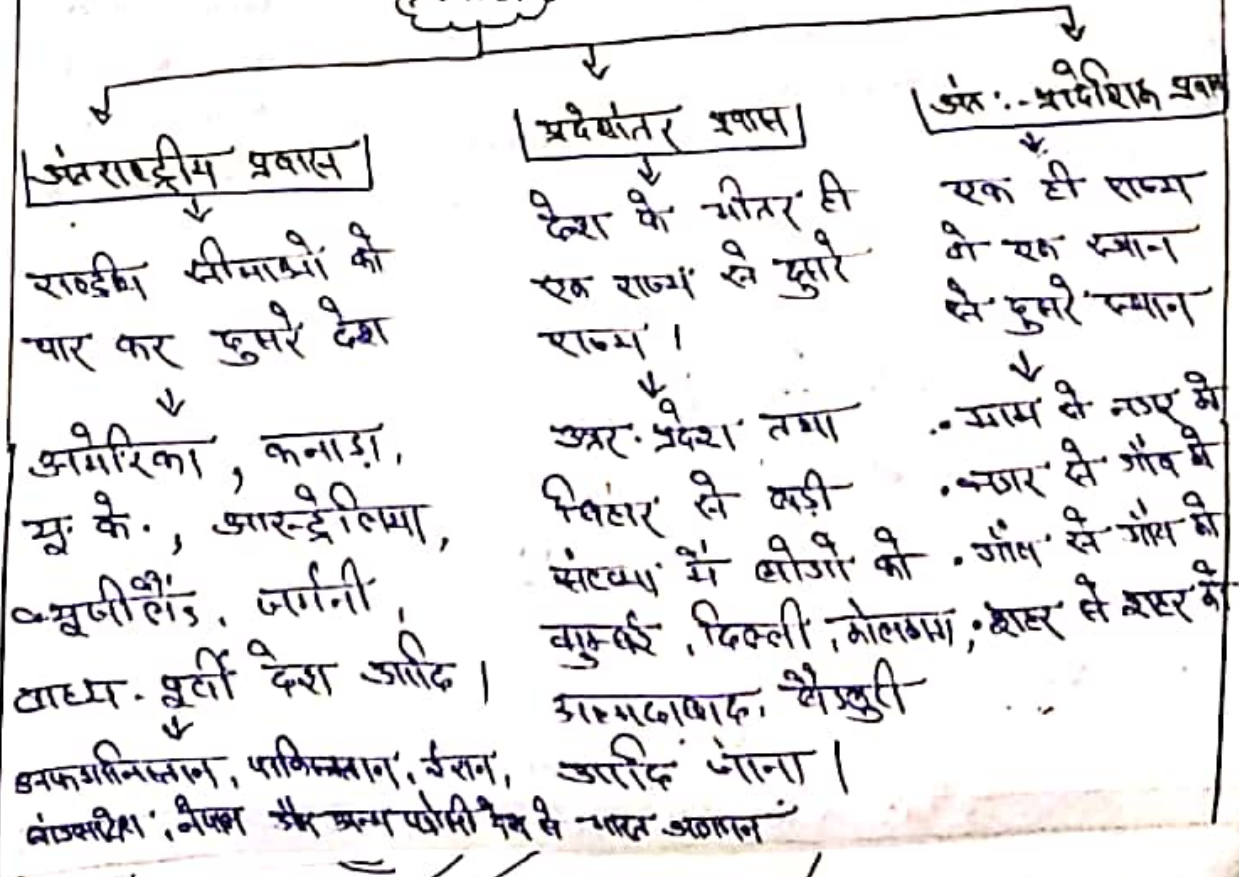 अंतराष्ट्रीय प्रवास
राष्ट्रीय सीमाओं को
पार कर दुसरे देश
अमेरिका, कनाडा,
यू. के., आस्ट्रेलिया,
न्यूजीलैंड, जर्मनी,
मध्य-पूर्वी देश आदि।
अफगानिस्तान, पाकिस्तान, ईरान,
बांग्लादेश, नेपाल और अन्य पड़ोसी देश से भारत आगमन
प्रदेशांतर प्रवास
देश के भीतर ही
एक राज्य से दुसरे
राज्य।
उत्तर-प्रदेश तथा
बिहार से बड़ी
संख्या में लोगो को
मुम्बई, दिल्ली, कोलकाता,
अहमदाबाद,
आदि जाना।
अंत:-प्रादेशिक प्रवास
एक ही राज्य
मे एक स्थान
से दुसरे स्थान
. ग्राम से नगर में
. नगर से गाँव मे
. गाँव से गाँव मे
. शहर से शहर मे